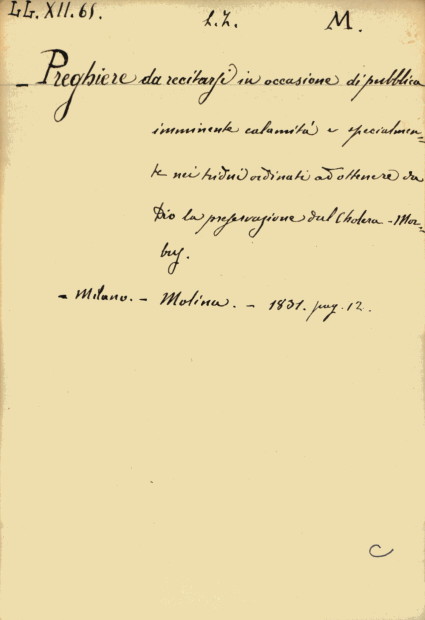 LL. XII. 61. L. Z. M.
_ Preghiere da recitarsi in occasione di pubblica
imminente calamità e specialmen=
te nei tridui ordinati ad ottenere da
Dio la preservazione dal Cholera - Mor=
bus.
- Milano. - Molina. - 1831. pag. 12.
C